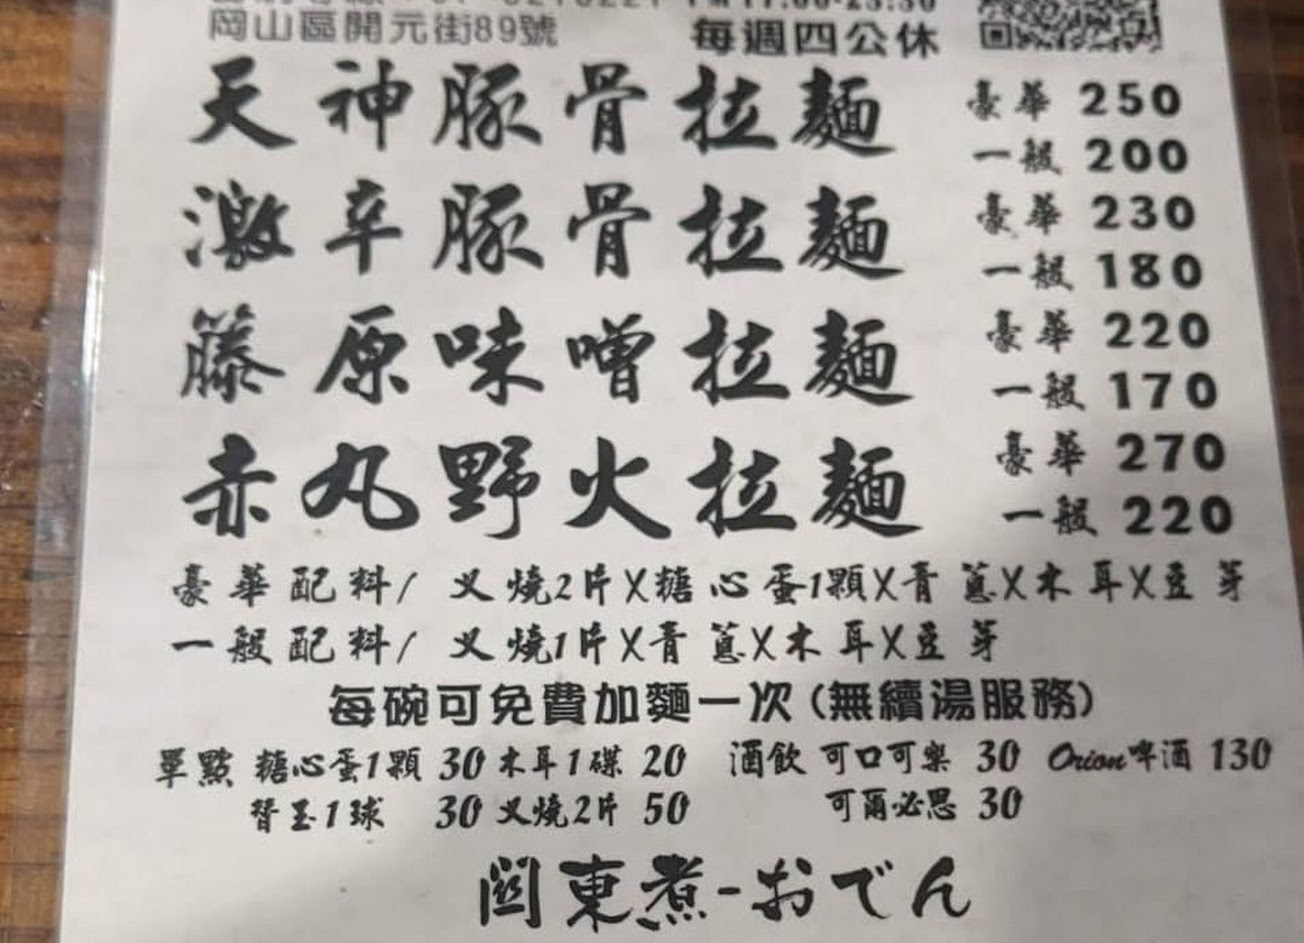 岡山區開元街89號 每週四公休
天神豚骨拉麵 豪華 250
一般 200
激辛豚骨拉麵 豪華 230
一般 180
藤原味噌拉麵 豪華 220
一般 170
赤丸野火拉麵 豪華 270
一般 220
豪華配料/ 叉燒2片X糖心蛋1顆X青蔥X木耳X豆芽
一般配料/ 叉燒1片X青蔥X木耳X豆芽
每碗可免費加麵一次(無續湯服務)
單點 糖心蛋1顆 30 木耳1碟 20 酒飲 可口可樂 30 Orion啤酒 130
替玉1球 30 叉燒2片 50 可爾必思 30
關東煮-おでん